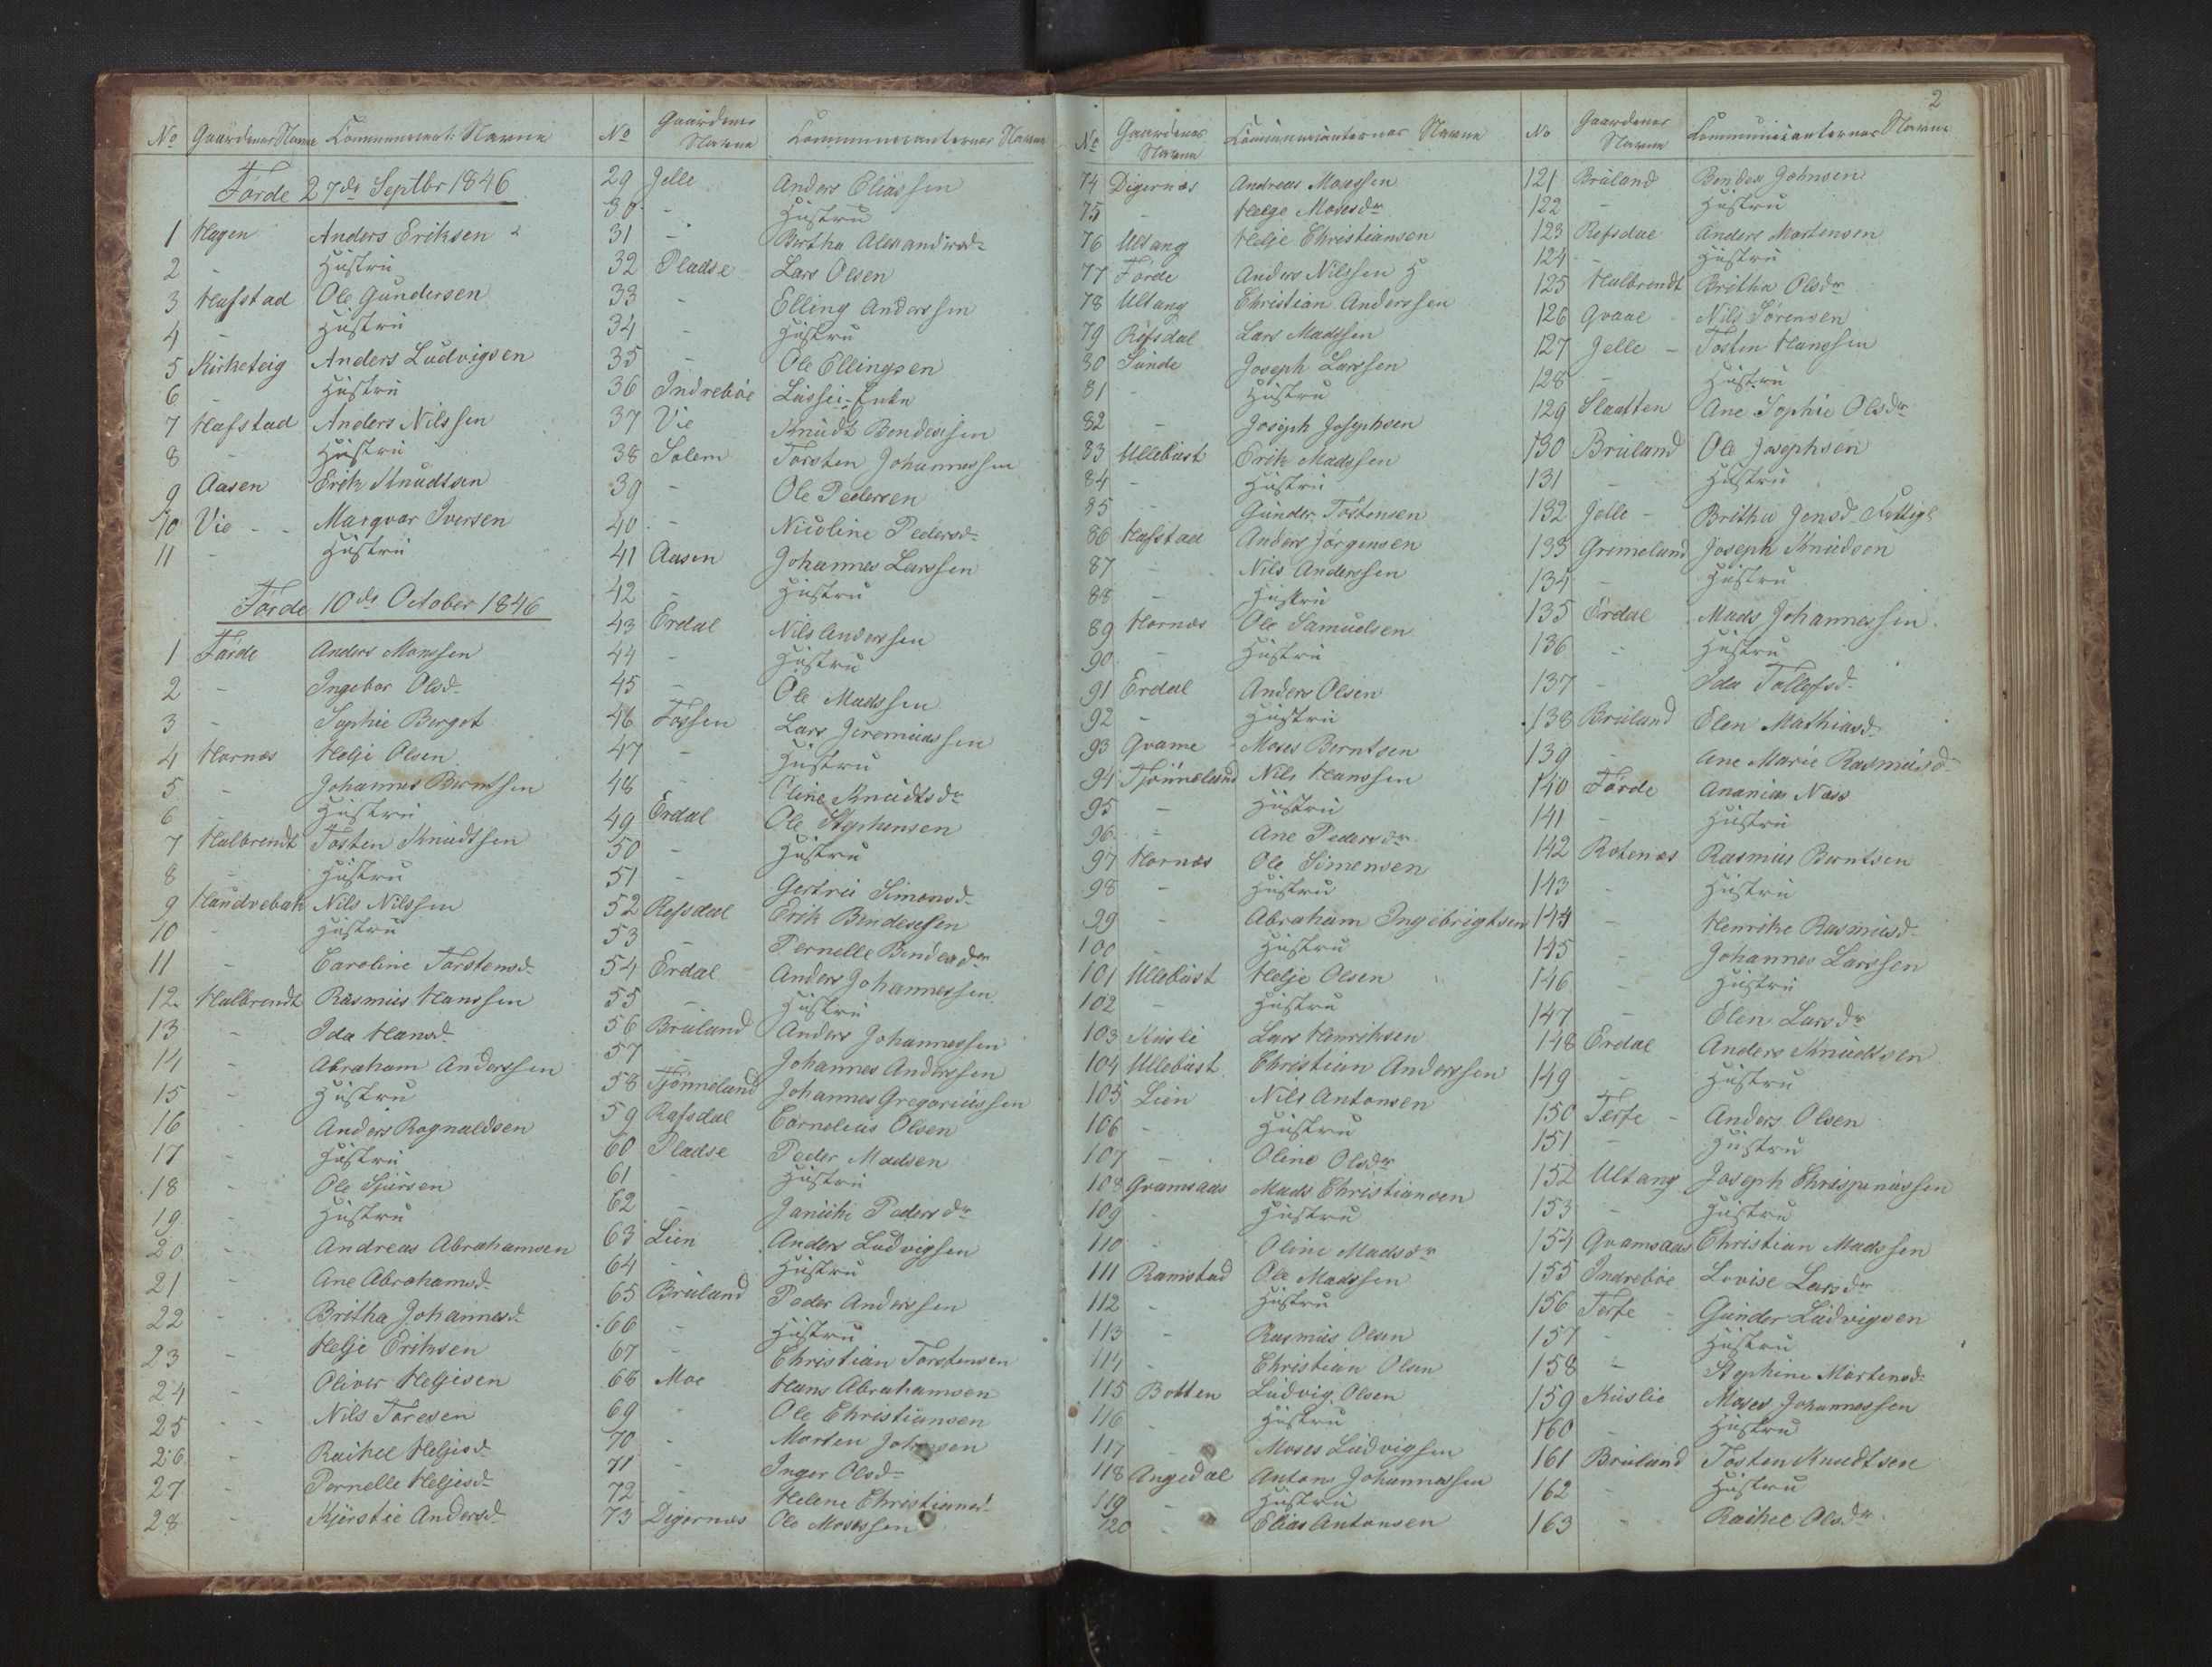 No Gaardenes Navne Communicant: Navne
Förde 27de Septbr 1846
1 Hagen Anders Eriksen
2 - Hustru
3 Hafstad Ole Gundersen
4 - Hustru
5 Kirketeig Anders Ludvigsen
6 - Hustru
7 Hafstad Anders Nilssen
8 - Hustru
9 Aasen Erik Knudtsen
10 Vie - - Marqvar Iversen
11 - Hustru
Förde 10de October 1846
1 Förde Anders Monssen
2 - Ingebor Olsd-
3 - Sophie Berget
4 Hornæs Helje Olsen
5 - Johannes Berntsen
6 - Hustru
7 Halbrendt Tosten Knudtsen
8 - Hustru
9 Haudrebak Nils Nilssen
10 - Hustru
11 - Caroline Torstensd-
12 Halbrendt Rasmus Hanssen
13 - Ida Hansd-
14 - Abraham Anderssen
15 - Hustru
16 - Anders Rognaldsen
17 - Hustru
18 - Ole Sjursen
19 - Hustru
20 - Andreas Abrahamsen
21 - Ane Abrahamsd-
22 - Britha Johannesd-
23 - Helje Eriksen
24 - Oliver Heljesen
25 - - Nils Toresen
26 - Rachel Heljesd-
27 - Pernelle Heljesd-
28 - Kjerstie Andersd-
No Gaardenes Navne Communicanternes Navne
29 Jelle Anders Eliassen
30 - Hustru
31 - Bertha Alexandersd-
32 Pladse Lars Olsen
33 - Elling Anderssen
34 - Hustru
35 - Ole Ellingsen
36 Indrebøe Lussei-Enke
37 Vie Knudt Bendixsen
38 Solem Torsten Johannessen
39 - Ole Pedersen
40 - Nicoline Pedersd-
41 Aasen Johannes Larssen
42 - Hustru
43 Erdal Nils Anderssen
44 - Hustru
45 - Ole Madssen
46 Fossen Lars Jeremiassen
47 - Hustru
48 - Oline Knudtsdr
49 Erdal Ole Stephensen
50 - Hustru
51 - Gertrui Simonsd-
52 Refsdal Erik Bendixsen
53 - Pernelle Bendexdr
54 Erdal Anders Johannessen
55 - Hustru
56 Bruland Anders Johannessen
57 - Johannes Anderssen
58 Tjönneland Johannes Gregoriussen
59 Refsdal Cornelius Olsen
60 Pladse Peder Madsen
61 - Hustru
62 - Janiche Pedersdr
63 Lien Anders Ludvigsen
64 - Hustru
65 Bruland Peder Anderssen
66 - Hustru
67 - Christian Torstensen
68 Moe Hans Abrahamsen
69 - Ole Christiansen
70 - Morten Johnsen
71 - Inger Olsd-
72 - Helene Christiansd-
73 Digernæs Ole Mosessen
No Gaardenes Navne Communicanternes Navne
74 Digernæs Andreas Mosessen
75 - Helge Mosesdr
76 Ultang Helje Christiansen
77 Förde Anders Nilssen
78 Ultang Christian Anderssen
79 Refsdal Lars Madssen
80 Sunde Joseph Larssen
81 - Hustru
82 - Joseph Josephsen
83 Ullebust Erik Madssen
84 - Hustru
85 - Gunder Tostensen
86 Hafstad Anders Jørgensen
87 - Nils Anderssen
88 - Hustru
89 Hornæs Ole Samuelsen
90 - Hustru
91 Erdal Anders Olsen
92 - Hustru
93 Qvame Moses Berntsen
94 Tjönneland Nils Hanssen
95 - Hustru
96 - Ane Pedersdr
97 Hornæs Ole Simensen
98 - Hustru
99 - Abraham Ingebrigtsen
100 - Hustru
101 Ullebust Helje Olsen
102 - Hustru
103 Kusli Lars Henriksen
104 Ullebust Christian Anderssen
105 Lien Nils Antonsen
106 - Hustru
107 - Oline Olsdr
108 Qvamsaas Mads Christiansen
109 - Hustru
110 - Oline Madsdr
111 Ramstad Ole Madssen
112 - Hustru
113 - Rasmus Olsen
114 - Christian Olsen
115 Botten Ludvig Olsen
116 - Hustru
117 - Moses Ludvigsen
118 Angedal Antons Johannessen
119 - Hustru
120 - Elias Antonsen
2
No Gaardenes Navne Communicanternes Navne
121 Bruland Bendix Johnsen
122 - Hustru
123 Refsdal Anders Mortensen
124 - Hustru
125 Halbrendt Britha Olsdr
126 Qvaal Nils Sörensen
127 Jelle - Tosten Hanssen
128 - Hustru
129 Slaatten Ane Sophie Olsdr
130 Bruland Ole Josephsen
131 - Hustru
132 Jelle - Britha Jensd-
133 Grimeland Joseph Knudsen
134 - Hustru
135 Erdal Mads Johannessen
136 - Hustru
137 - Ida Tollefsd-
138 Bruland Elen Mathiasd-
139 - Ane Marie Rasmusd-
140 Förde Ananias Næss
141 - Hustru
142 Rotenæs Rasmus Berntsen
143 - Hustru
144 - Henrike Rasmusd-
145 - Johannes Larssen
146 - Hustru
147 - Elen Larsdr
148 Erdal Anders Knudtsen
149 - Hustru
150 Terfe - Anders Olsen
151 - Hustru
152 Ultang Joseph Chrispinussen
153 - Hustru
154 Qvamsaas Christian Madssen
155 Indrebøe Lovise Larsdr
156 Terfe - Gunder Ludvigsen
157 - Hustru
158 - Stephine Mortensd-
159 Kuslie Moses Johannessen
160 - Hustru
161 Bruland Tosten Knudtsen
162 - Hustru
163 - Rachel Olsdr